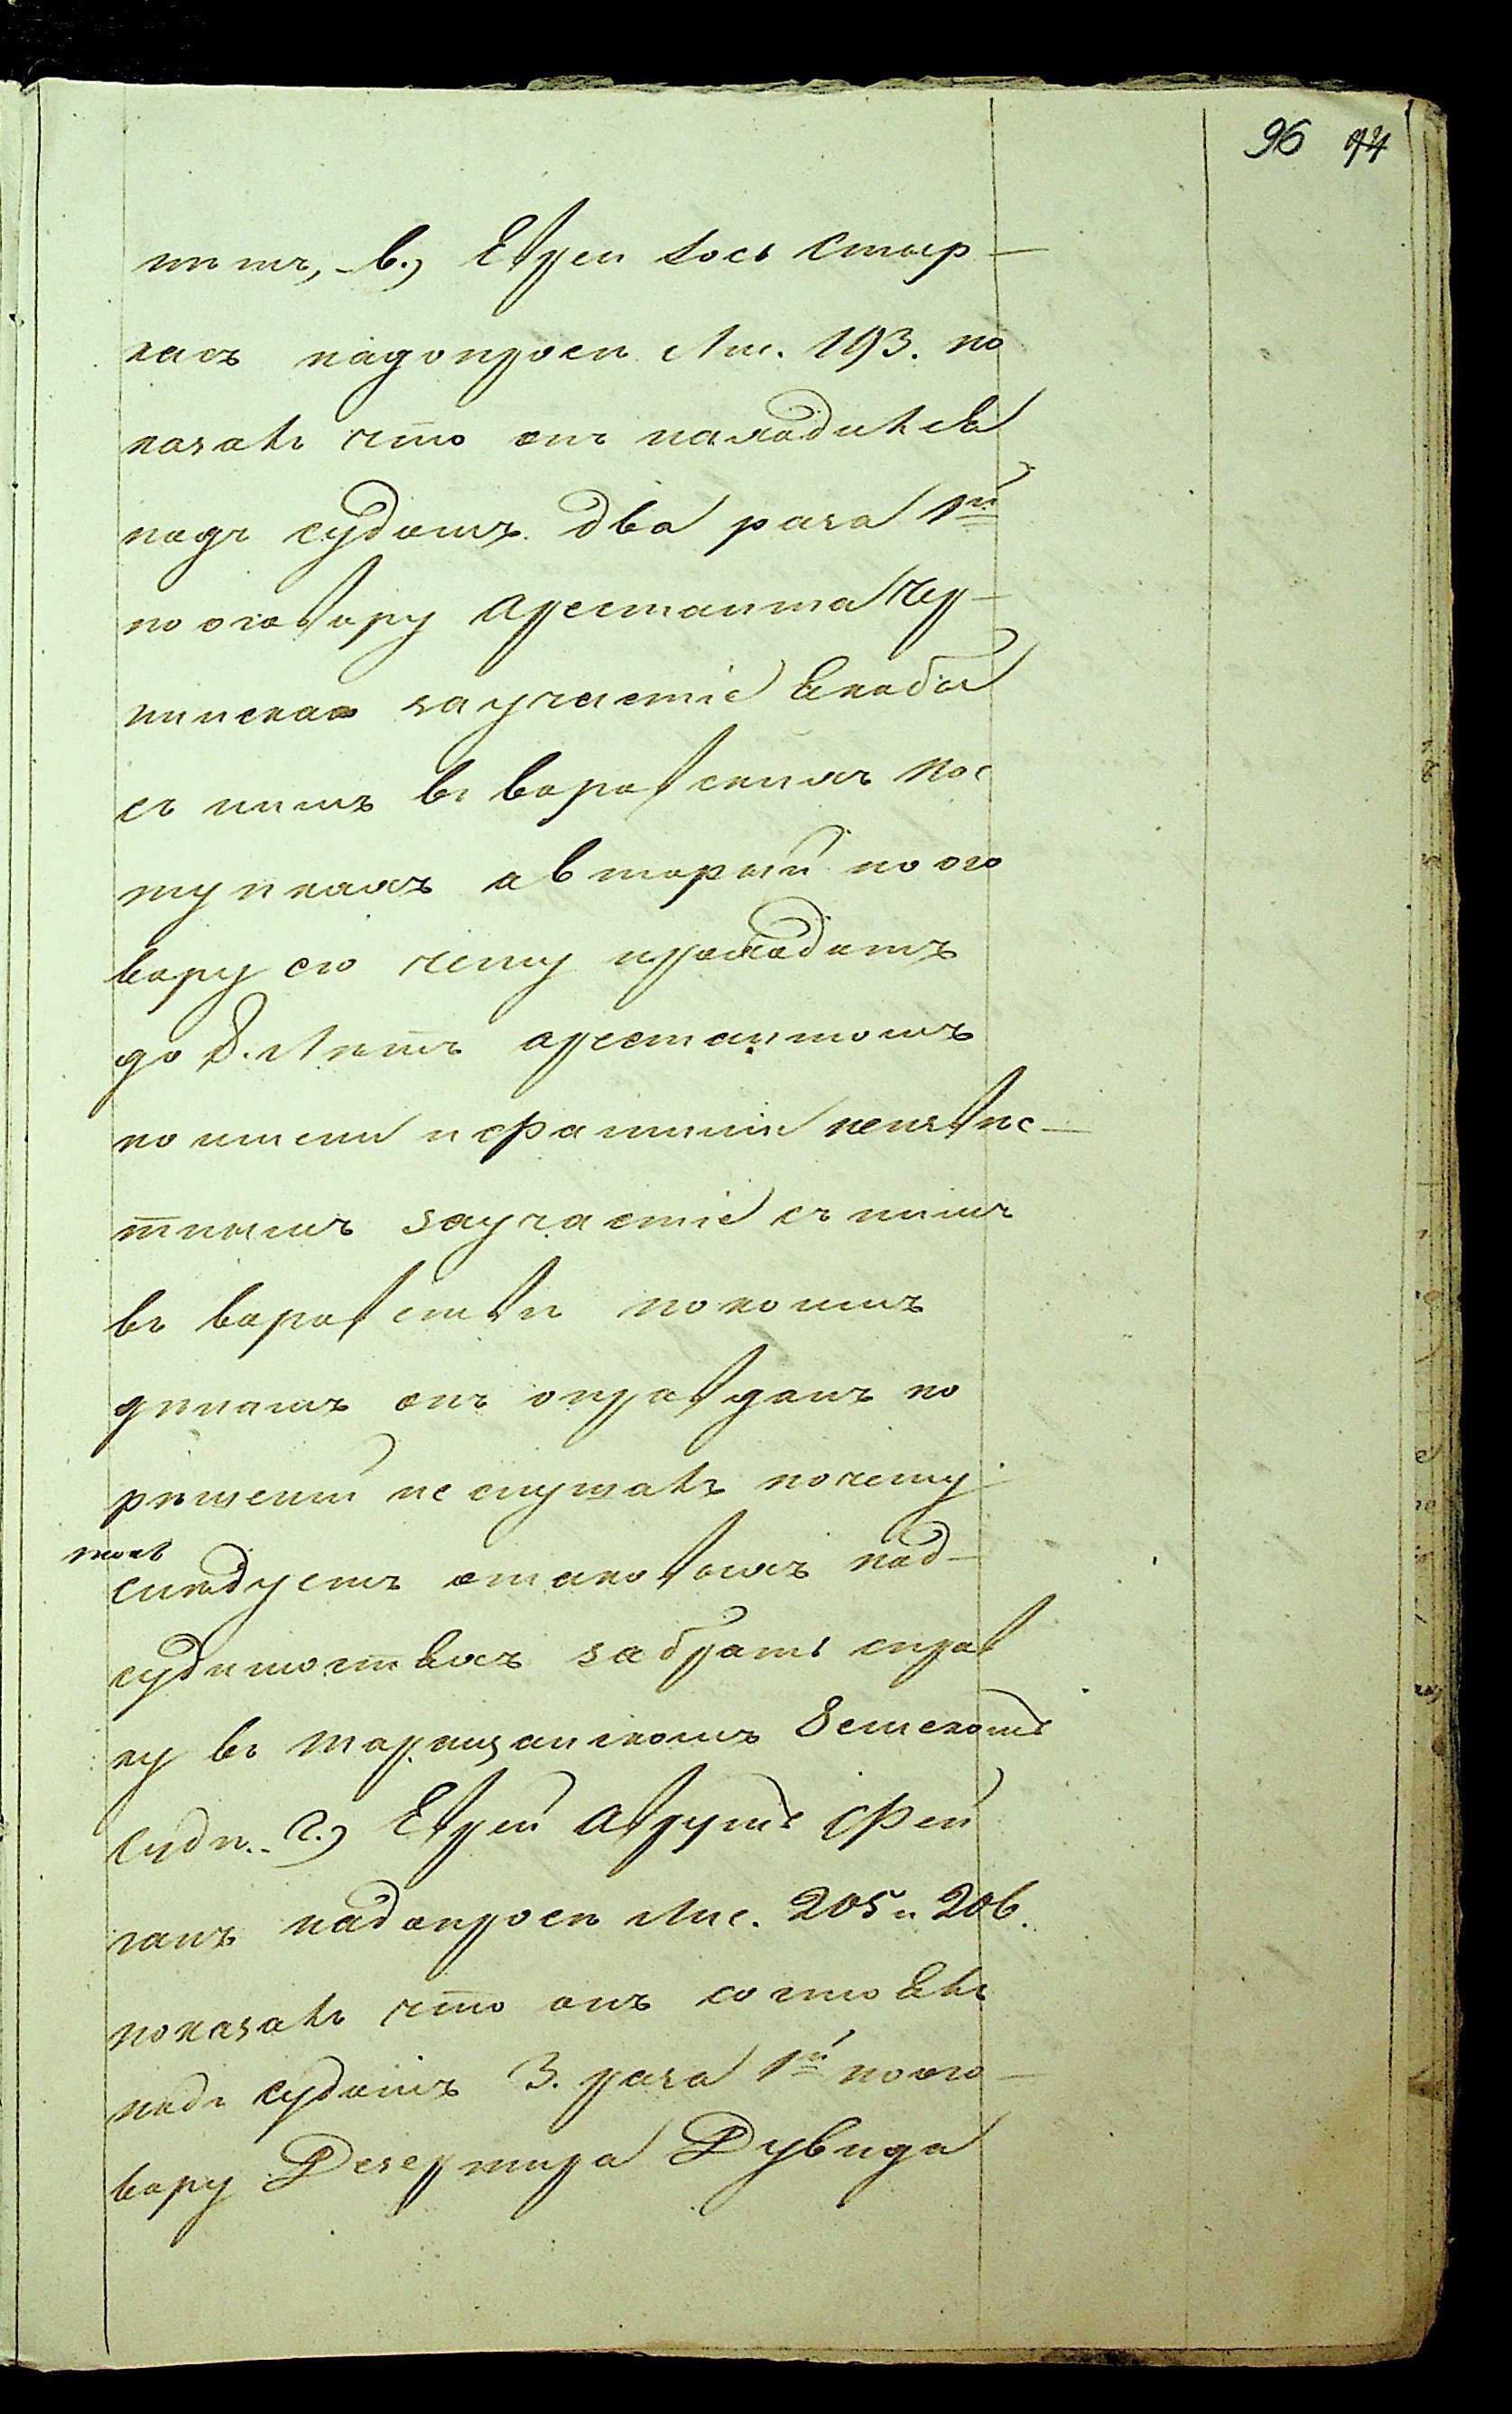 96 94
нимъ, - в.) Еврей Іось Стыр-
касъ надопросѣ лис. 193. по
казалъ что онъ находился
подъ судомъ два раза 1й
по оговору арестанта Чер-
нинскаго заучастіе якобы
съ нимъ въ воровскихъ пос
тупкахъ а вторый по ого
вору сю чему прошодомъ
до 8. лѣтъ арестантомъ
по имени и фамиліи неизвѣс-
тнымъ заучастіе съ нимъ
въ воровствѣ по коимъ
дѣламъ онъ оправданъ но
рѣшеній неслушалъ почему
то и
слѣдуетъ отаковыхъ под-
судимостяхъ забрать справ
ку въ Таращанскомъ Земскомъ
Судѣ. - г.) Еврей Аврумъ Фей
ганъ надопросѣ лис. 205 и 206.
показалъ что онъ состоялъ
подъ судомъ 3. раза 1й по ого-
вору Дезертира Дувида